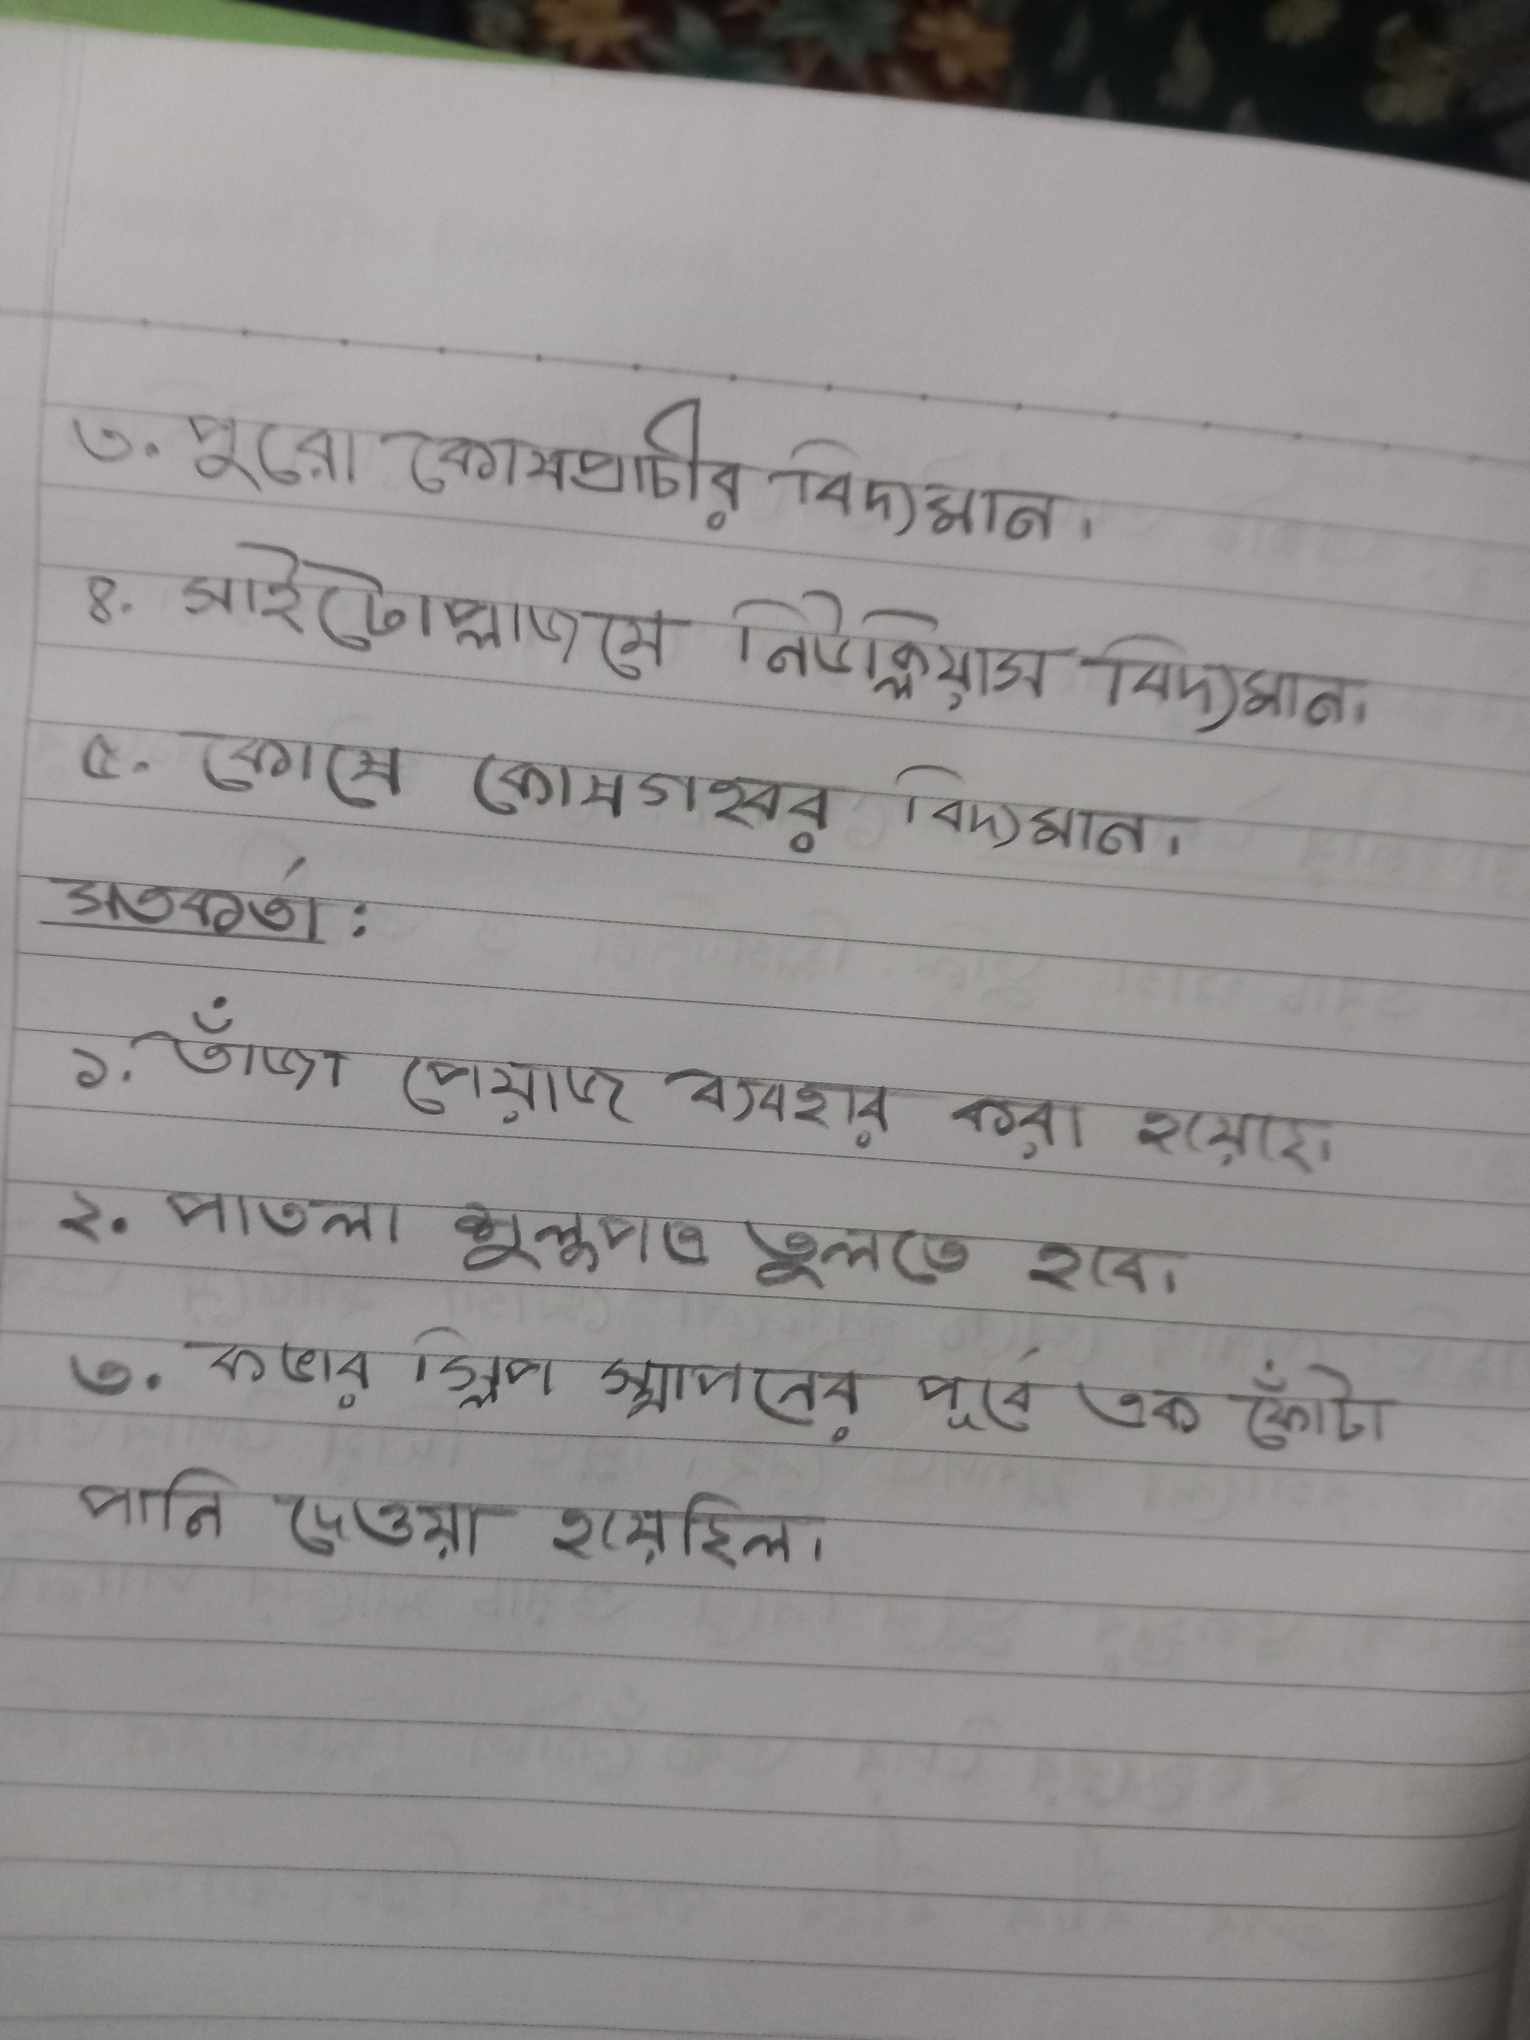 ৩. পুরো কোষপ্রাচীর বিদ্যমান।
৪. সাইটোপ্লাজমে নিউক্লিয়াস বিদ্যমান।
৫. কোষে কোষগহ্বর বিদ্যমান।
সতকর্তা :
১. তাঁজা পেয়াজ ব্যবহার করা হয়েছে।
২. পাতলা শুল্কপত্র তুলতে হবে।
৩. কভার স্লিপ স্থাপনের পূর্বে এক ফোঁটা
পানি দেওয়া হয়েছিল।